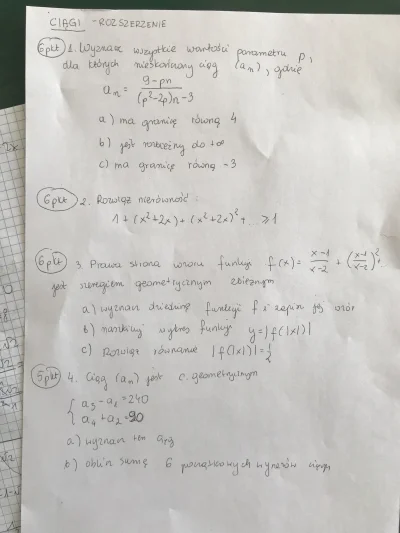 CIĄGI - ROZSZERZENIE
6pkt 1. Wyznacz wszystkie wartości parametru p,
dla których nieskończony ciąg (an), gdzie
an = 9-pn / (p²-2p)n-3
a) ma granicę równą 4
b) jest rozbieżny do +∞
c) ma granicę równą -3
6pkt 2. Rozwiąż nierówność:
1+(x²+2x)+(x²+2x)²+... ≥1
6pkt 3. Prawa strona wzoru funkcji f(x)= x-1/x-2 + (x-1/x-2)²+...
jest szeregiem geometrycznym zbieżnym
a) wyznacz dziedzinę funkcji f i zapisz jej wzór
b) naszkicuj wykres funkcji y=|f(|x|)|
c) Rozwiąż równanie |f(|x|)|=1/2
5pkt 4. Ciąg (an) jest c. geometrycznym
a4+a2=90
a) wyznacz ten ciąg
b) oblicz sumę 6 początkowych wyrazów ciągu